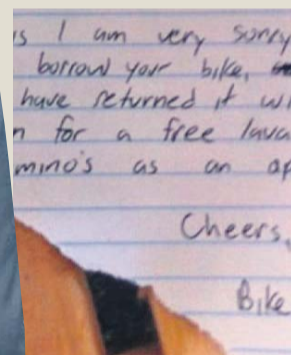 I am very sorry
borrow your bike,
have returned it
for a free lava
mino's as an ap
Cheers,
Bike